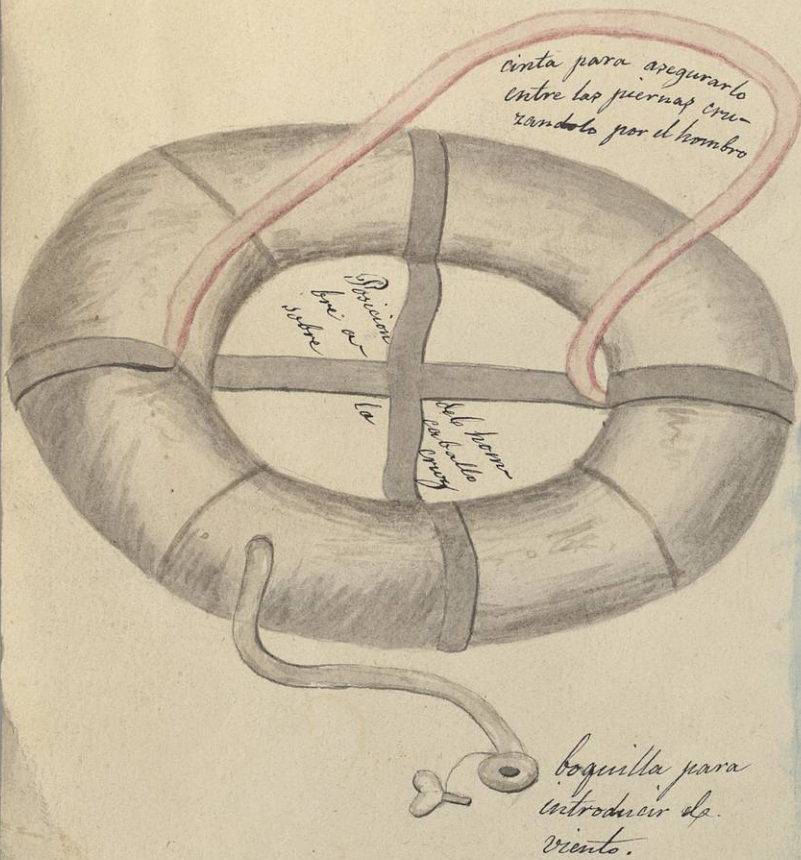 cinta para asegurarlo
entre las piernas cru-
zandolo por el hombro
Posicion
bre a
sobre
la
del hom
caballo
cruz
boquilla para
introducir el
viento.